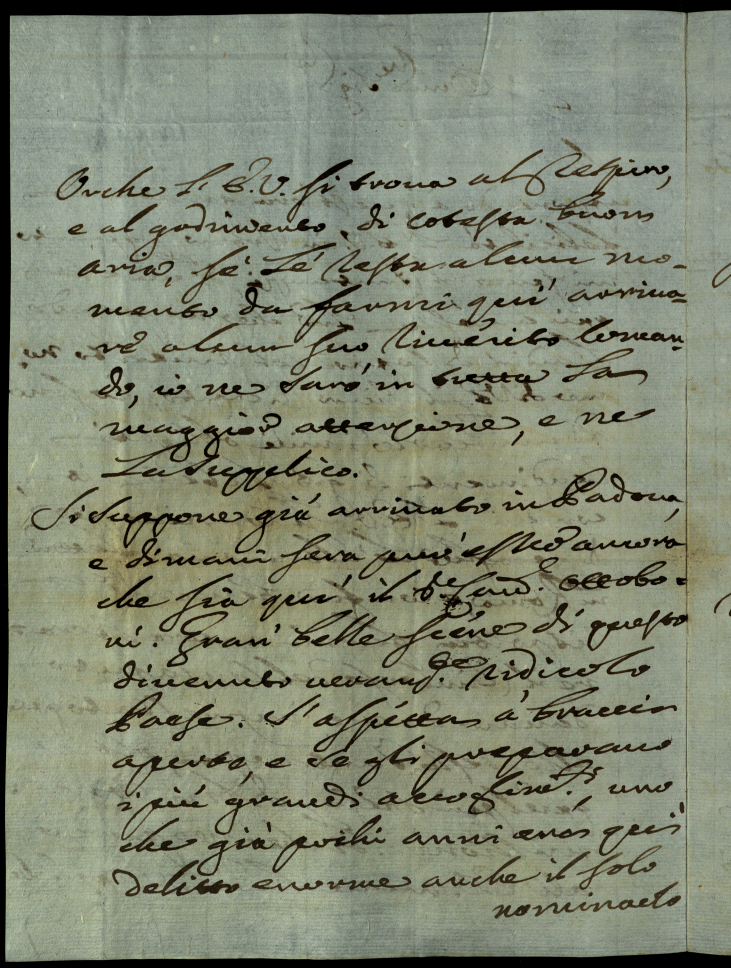 Orche L'E.V. si trova al Respiro,
e al godimento, di cotesta buon
aria, se Le resta alcun mo-
mento da farmi quì arriva-
re alcun suo riverito Coman-
do, io ne sarò in tratta La
maggior attenzione, e ne
La supplico.
Si suppone già arrivato in Padova,
e dimani sera può esser ancora
che sia quì il Sr Card.e Ottobo-
ni. Gran belle Scene di questo
divenuto veram.te ridicolo
Paese. S'aspetta à braccia
aperte, e se gli preparano
i più grandi accoglim.ti, uno
che già pochi anni era quì
delitto enorme anche il solo
nominarlo